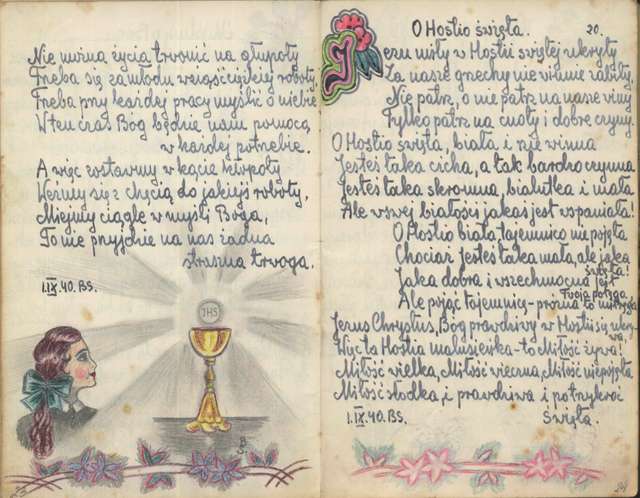 Nie można życia trwonić na głupoty
Trzeba się zamłodu wziąść ciężkiej roboty,
Trzeba przy każdej pracy myślić o niebie
W ten czas Bóg będzie nam pomocą
w każdej potrzebie.
A więc zostawmy w kącie kłopoty
Weźmy się z chęcią do jakiejś roboty,
Miejmy ciągle w myśli Boga,
To nie przyjdzie na nas żadna
straszna trwoga.
1.IX.40. BS.
IHS
BS.
23
O Hostio święta. 20.
Jezu miły w Hostii świętej ukryty
Za nasze grzechy niewinnie zabity
Nie patrz, o nie patrz na nasze winy
Tylko patrz na cnoty i dobre czyny.
O Hostio święta, biała i niewinna
Jesteś taka cicha, a tak bardzo czynna
Jesteś taka skromna, bialutka i mała
Ale w swej białości jakaś jest wspaniała!
O Hostio biała, tajemnico niepojęta
Chociaż jesteś taka mała, ale jaka
święta!
Jaka dobra i wszechmocna jest
Twoja potęga
Ale pojąc tajemnicę - próżna to
Jezus Chrystus, Bóg prawdziwy w Hostii się ukry
wa,
Więc ta Hostia malusieńka - to Miłość żywa!
Miłość wielka, Miłość wieczna, Miłość niepojęta
Miłość słodka, i prawdziwa i potrzykroć
Święta.
1.IX.40. BS.
24